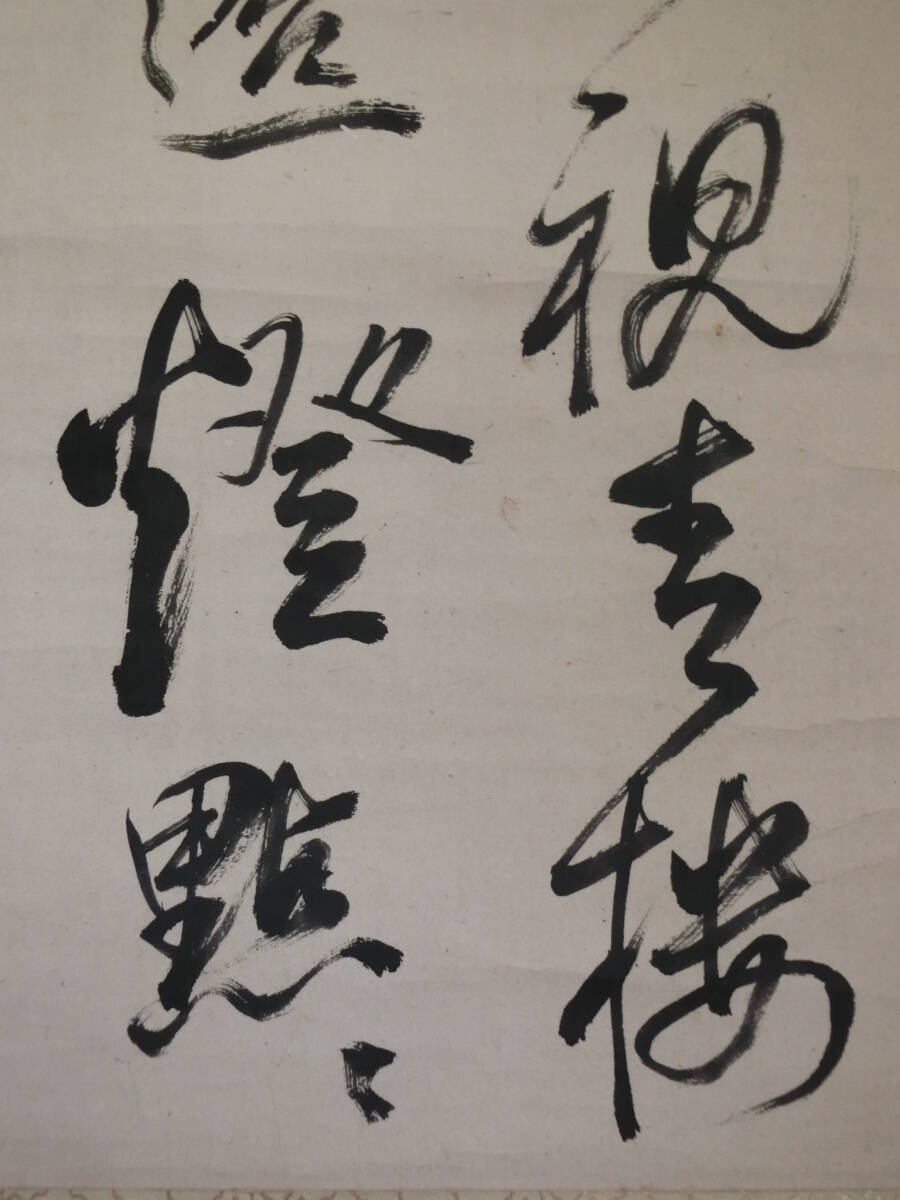 視青楼
燈點々